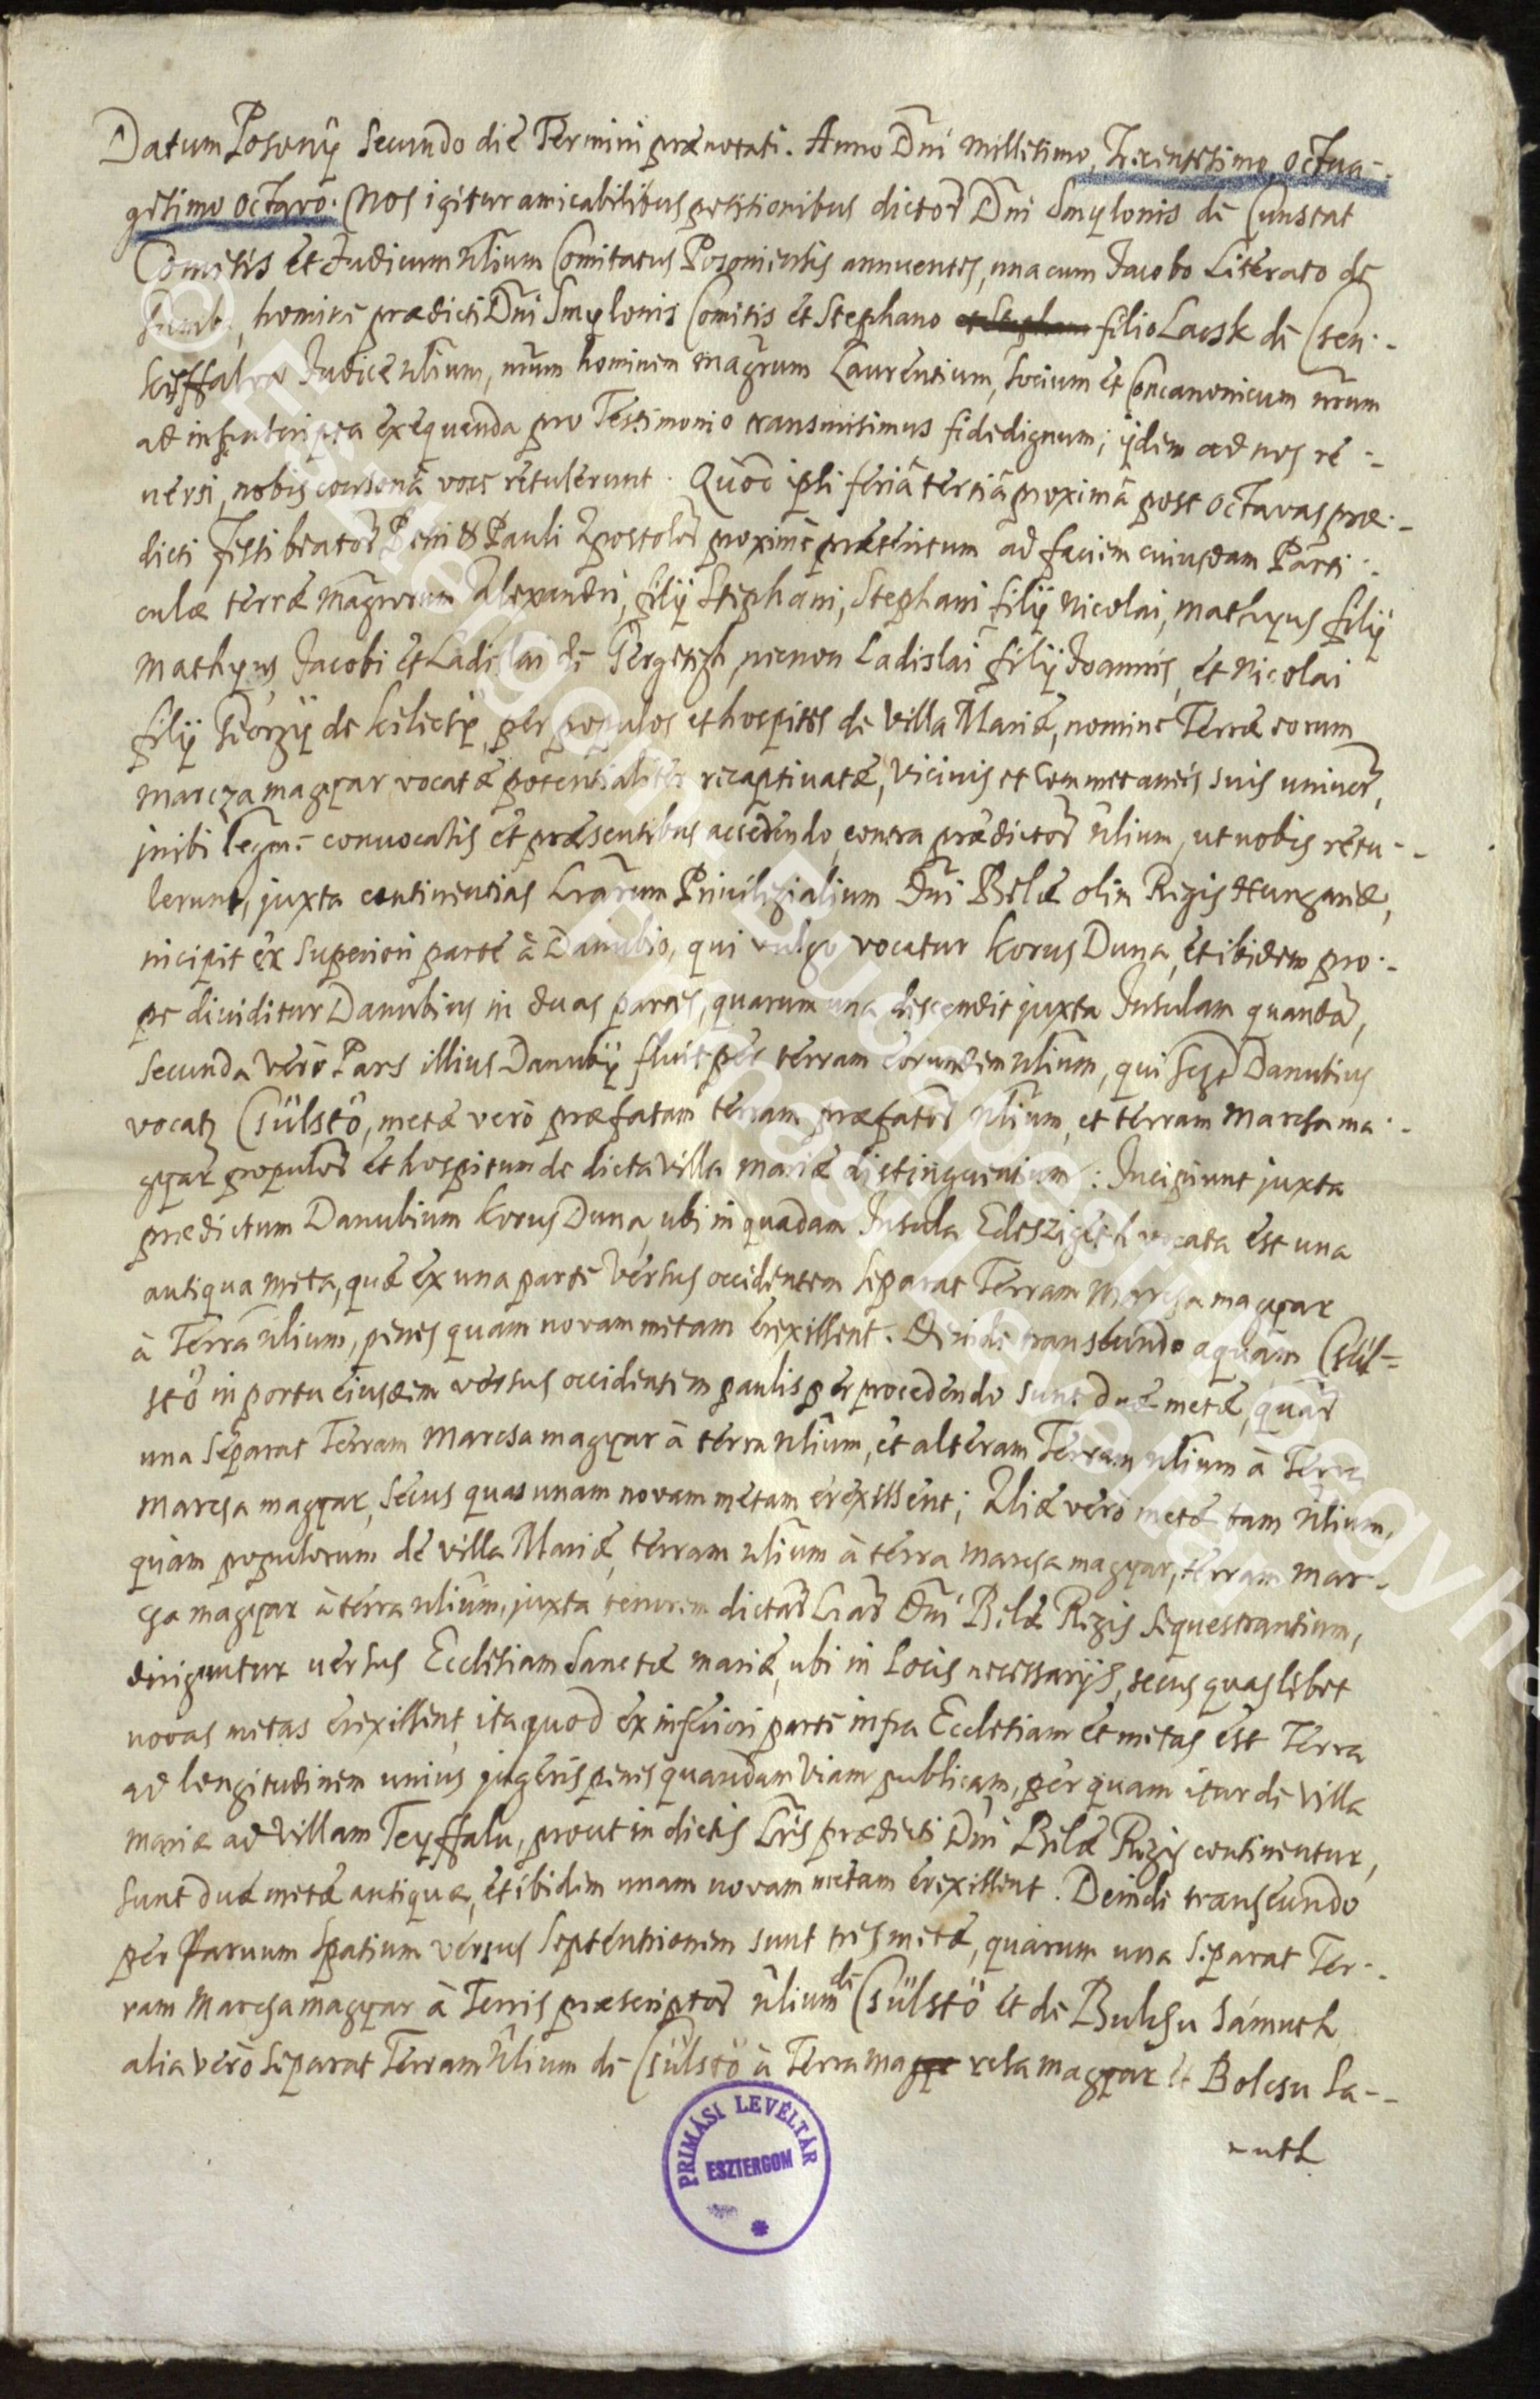 Datum Posonij Secundo die Termini prænotati. Anno Dni Millesimo, Trecentesimo, Octua-
gesimo Octavo. Nos igitur amicabilibus petitionibus dictor Dni Smylonis de Cunstat
Comitis et Judicum Nlium Comitatus Posoniensis annuentes, una cum Jacobo Literato de
homine prædicti Dni Smylonis Comitis et Stephano filio Laczk de Csen-
keffalva Judice Nlium, nrum hominem Magrum Laurentium, Socium et Concanonicum nrum
ad infrascripta exequenda pro Testimonio transmisimus fidedignum; ijdem ad nos re-
versi, nobis consona voce retulerunt. Quod ipsi feriâ tertiâ proximâ post Octavas præ-
dicti festi beator Petri & Pauli Apostolor proxime præteritum ad faciem cuiusdam Parti-
culæ terræ Magrorum Alexandri, filij Stephani, Stephani filij Nicolai, Mathyus filij
Mathyus, Jacobi et Ladislai de necnon Ladislai filij Joannis, et Nicolai
filij Georgij de per populos et hospites de Villa Mariæ, nomine Terræ eorum
Marcza magyar vocatæ potentialiter recaptivatæ, Vicinis et Commetaneis suis univer,
inibi legme convocatis et præsentibus accedendo, contra prædictor Nlium, ut nobis retu-
lerunt, juxta continentias Lrarum Privilegialium Dni Belæ olim Regis Hungariæ,
incipit ex Superiori parte à Danubio, qui vulgo vocatur Korus Duna, et ibidem pro-
pe dividitur Danubius in duas partes, quarum una descendit juxta Insulam quanda,
Secunda verò Pars illius Danubij fluit per terram eorundem Nlium, qui Danubius
vocatz Csülstö, metæ verò præfatam terram præfator Nlium, et terram Marcsa ma-
gyar populor et hospitum de dicta Villa Mariæ distinguentium: Incipiunt juxta
prædictum Danubium Korus Duna, ubi in quadam Insula Edeszigeth vocata est una
antiqua meta, quæ ex una parte versus occidentem Separat Terram Marcsa magyar
à Terra Nlium, penes quam novam metam erexissent. Deinde transeundo aquam Csül-
stö in portu eiusdem versus occidentem paulisper procedendo sunt duæ metæ, quar
una Separat Terram Marcsa magyar à terra Nlium, et alteram Terram Nlium à Terra
Marcsa magyar, Secus quas unam novam metam erexissent; Aliæ verò metæ tam Nlium,
quàm populorum de villa Mariæ, terram Nlium à terra Marcsa magyar, terram Mar-
csa magyar à terra Nlium, juxta tenorem dictar Lrar Dni Belæ Regis Sequestrantium,
diriguntur versus Ecclesiam Sanctæ Mariæ, ubi in Locis necessarijs, secus quaslibet
novas metas erexissent, ita quod ex inferiori parte infra Ecclesiam et metas est Terra
ad longitudinem unius jugeris penes quandam Viam publicam, per quam itur de Villa
Mariæ ad Villam Teyffalu, prout in dictis Lris prædicti Dni Belæ Regis continentur,
Sunt duæ metæ antiquæ, et ibidem unam novam metam erexissent. Deinde transeundo
per Parvum Spatium versus Septentrionem sunt tres metæ, quarum una Separat Ter-
ram Marcsa magyar à Terris præscriptor Nlium de Csülstö et de Bulcsu Sámuth
alia verò Separat Terram Nlium de Csülstö à Terra magyar et Bolcsu Sa-
muth
PRIMÁSI LEVÉLTÁR
ESZTERGOM